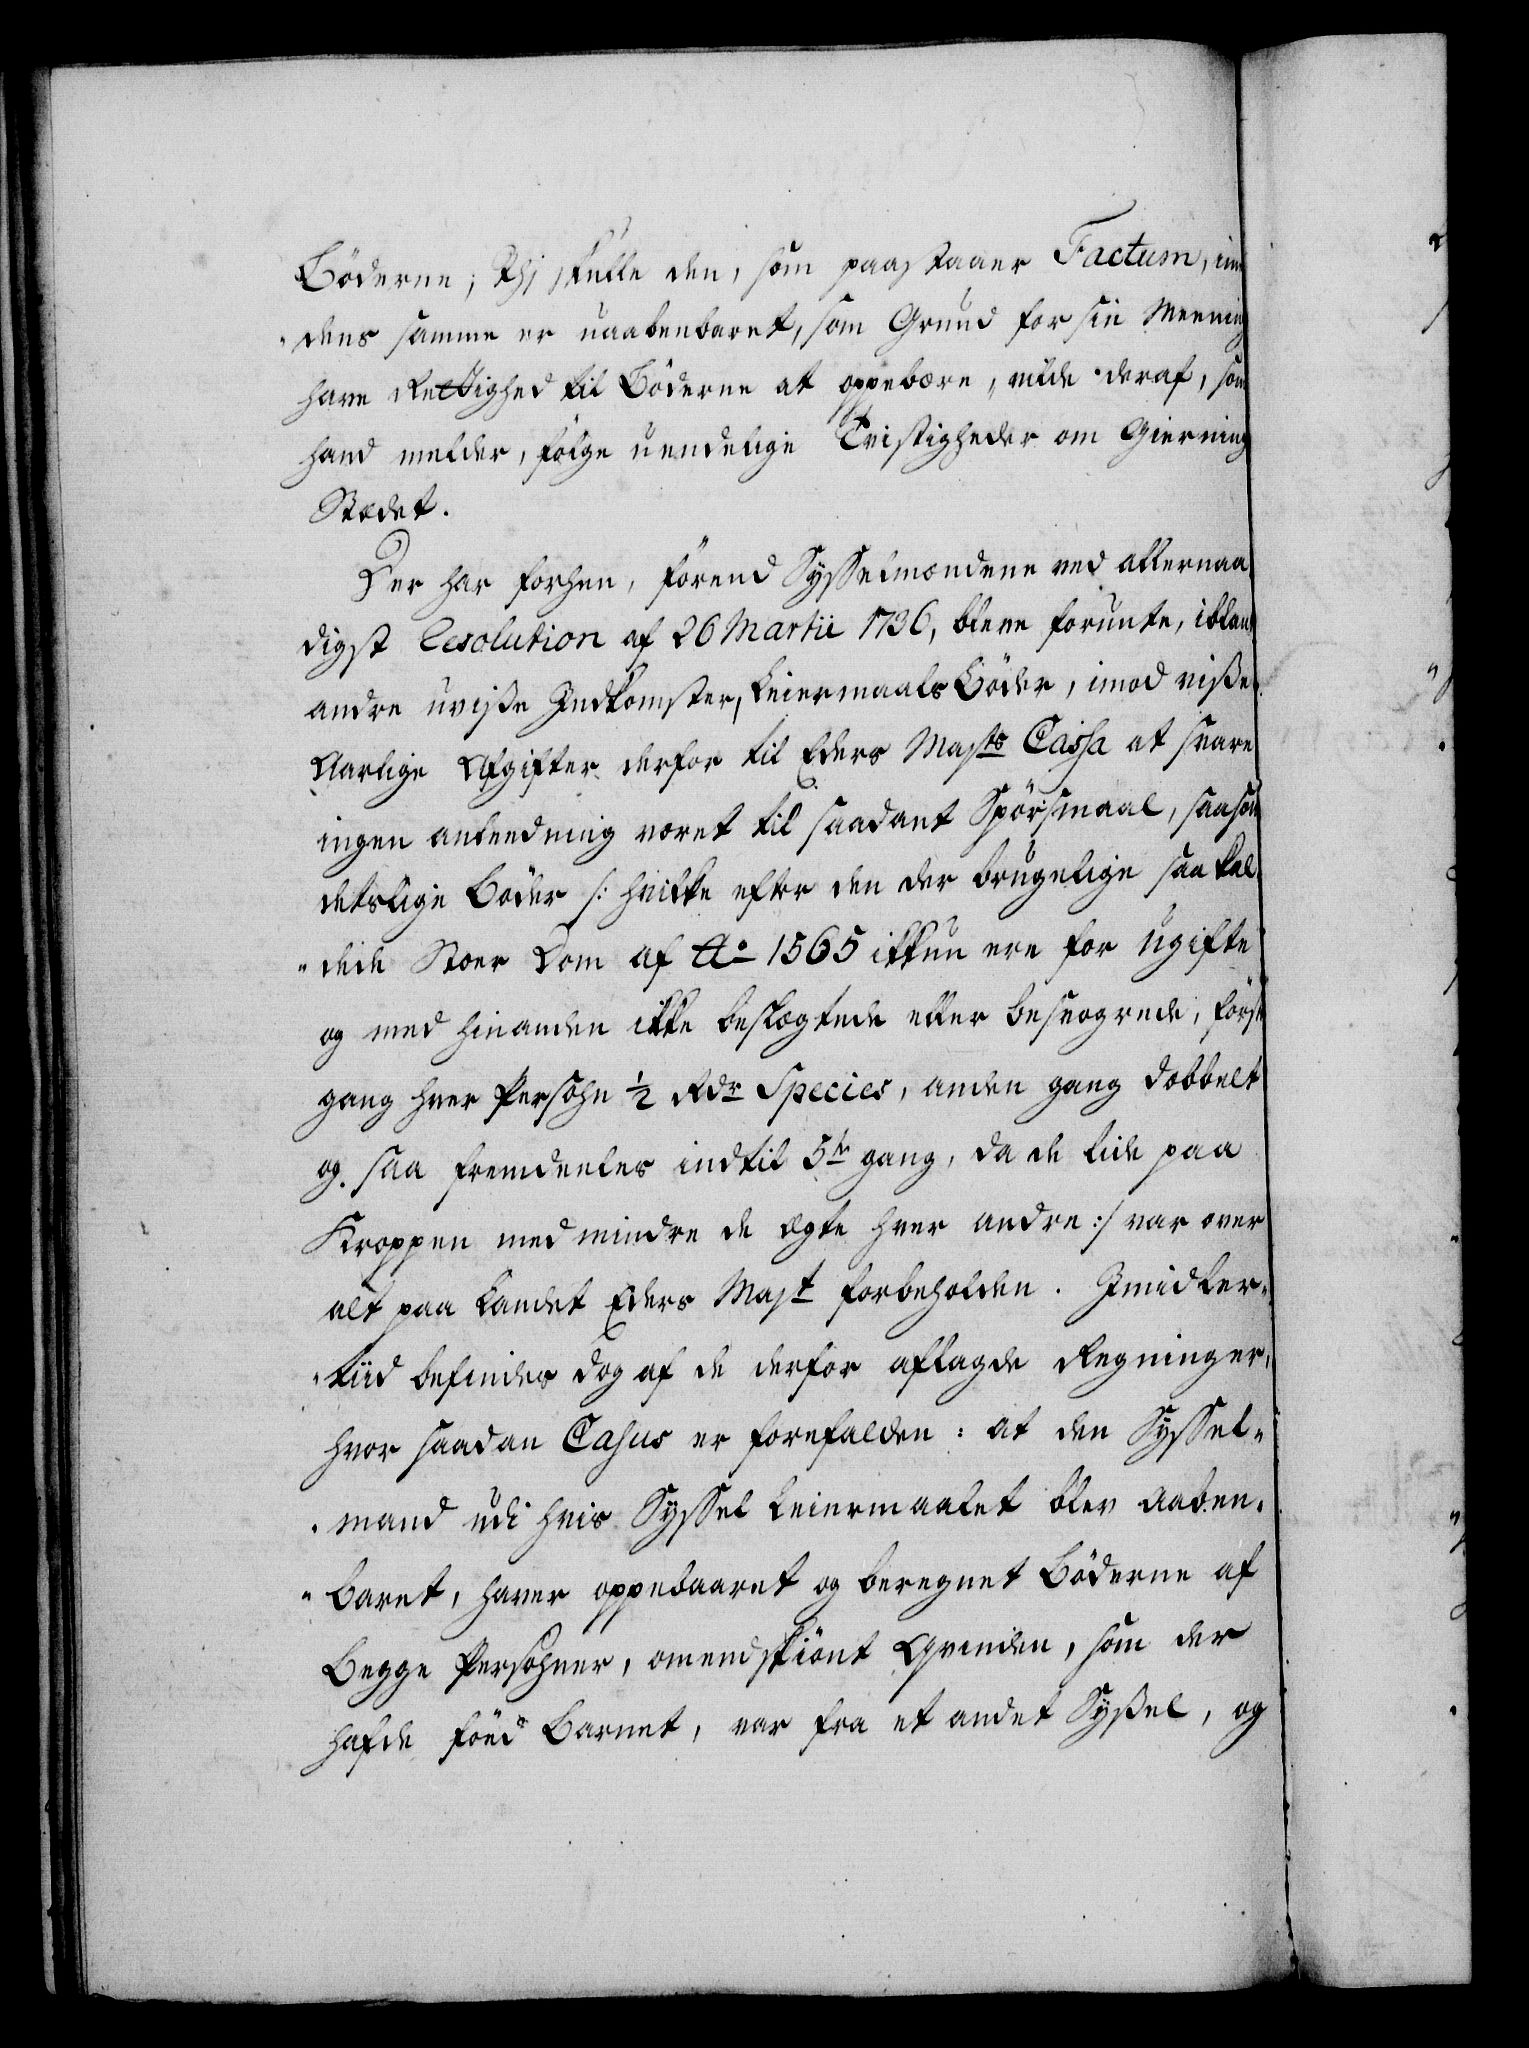 Böderne; Thj skulle den, som paastaaer Factum, in¬
„dens samme er uaabenbaret, som Grund for sin Meening
have Rettighed til Böderne at oppebære, vilde deraf, som
hand melder, fölge uendelige Tvistigheder om Giernings
Stædet.
Der har forhen, förend Sysselmændene ved allernaa¬
digst Resolution af 26 Martii 1736, bleve forundte, iblant
andre uvisse Indkomster, Leiermaals Böder, imod visse
Aarlige Afgifter derfor til Eders Mayts Cassa at svare
ingen anleedning været til saadant Spörsmaal, saasom
deslige Böder /: hvilke efter den der brugelige saa kal
„dede Stoer Dom af Ao 1565 ikkun ere for Ugifte
og med hinanden ikke beslægtede eller besvogrede, förste
gang hver Persohn ½ Rdr Species, anden gang dobbelt
og saa fremdeeles indtil 5te gang, da de lide paa
Kroppen med mindre de ægte hver andre :/ var over
alt paa Landet Eders Mayt forbeholden. Imidler„
„tiid befindes dog af de derfor aflagde Regninger,
hvor saadan Casus er forefalden: at den Syssel„
„mand udi hvis Syssel Leiermaalet blev aaben„
„baret, haver oppebaaret og beregnet Böderne af
Begge Persohner, omendskiönt Qvinden, som der
hafde föed Barnet, var fra et andet Syssel, og